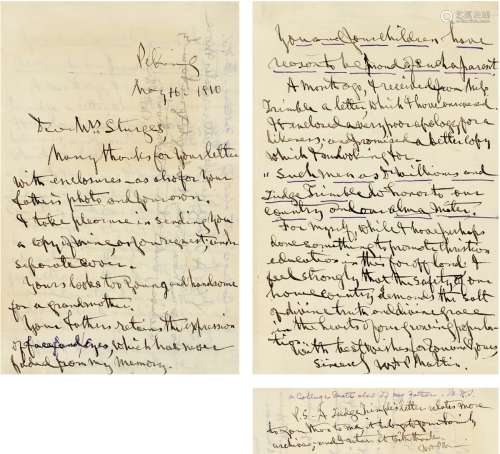 Peking
May 16. 1910
Dear Mrs. Sturges,
Many thanks for your letter
with enclosures – as also for your
father's photo and your own.
I take pleasure in sending you
a copy of mine, as you request, under
separate cover.
Yours looks too young and handsome
for a grandmother.
Your father's retains the expression
of face and eyes, which has never
faded from my memory.
You and your children have
reason to be proud of such a parent
A month ago, I received from Judge
Trimble a letter, which I have answered.
It enclosed a very poor apology for a
likeness, and promised a better copy
which I am looking for.
"Such men as Dr. Williams and
Judge Trimble do honor to our
country and our alma mater.
For myself, while I have perhaps
done something to promote Christian
education in this far off land, I
feel strongly, that the safety of our
home country, demands the salt
of divine truth and divine grace
in the hearts of our growing popula-
tion.
With best wishes for you and yours,
Sincerely W. A. P. Martin.
a College mate also of my Father.
P.S. – As Judge Trimble's letter relates more
to you than to me, it belongs to your family
archives, and I return it with thanks.